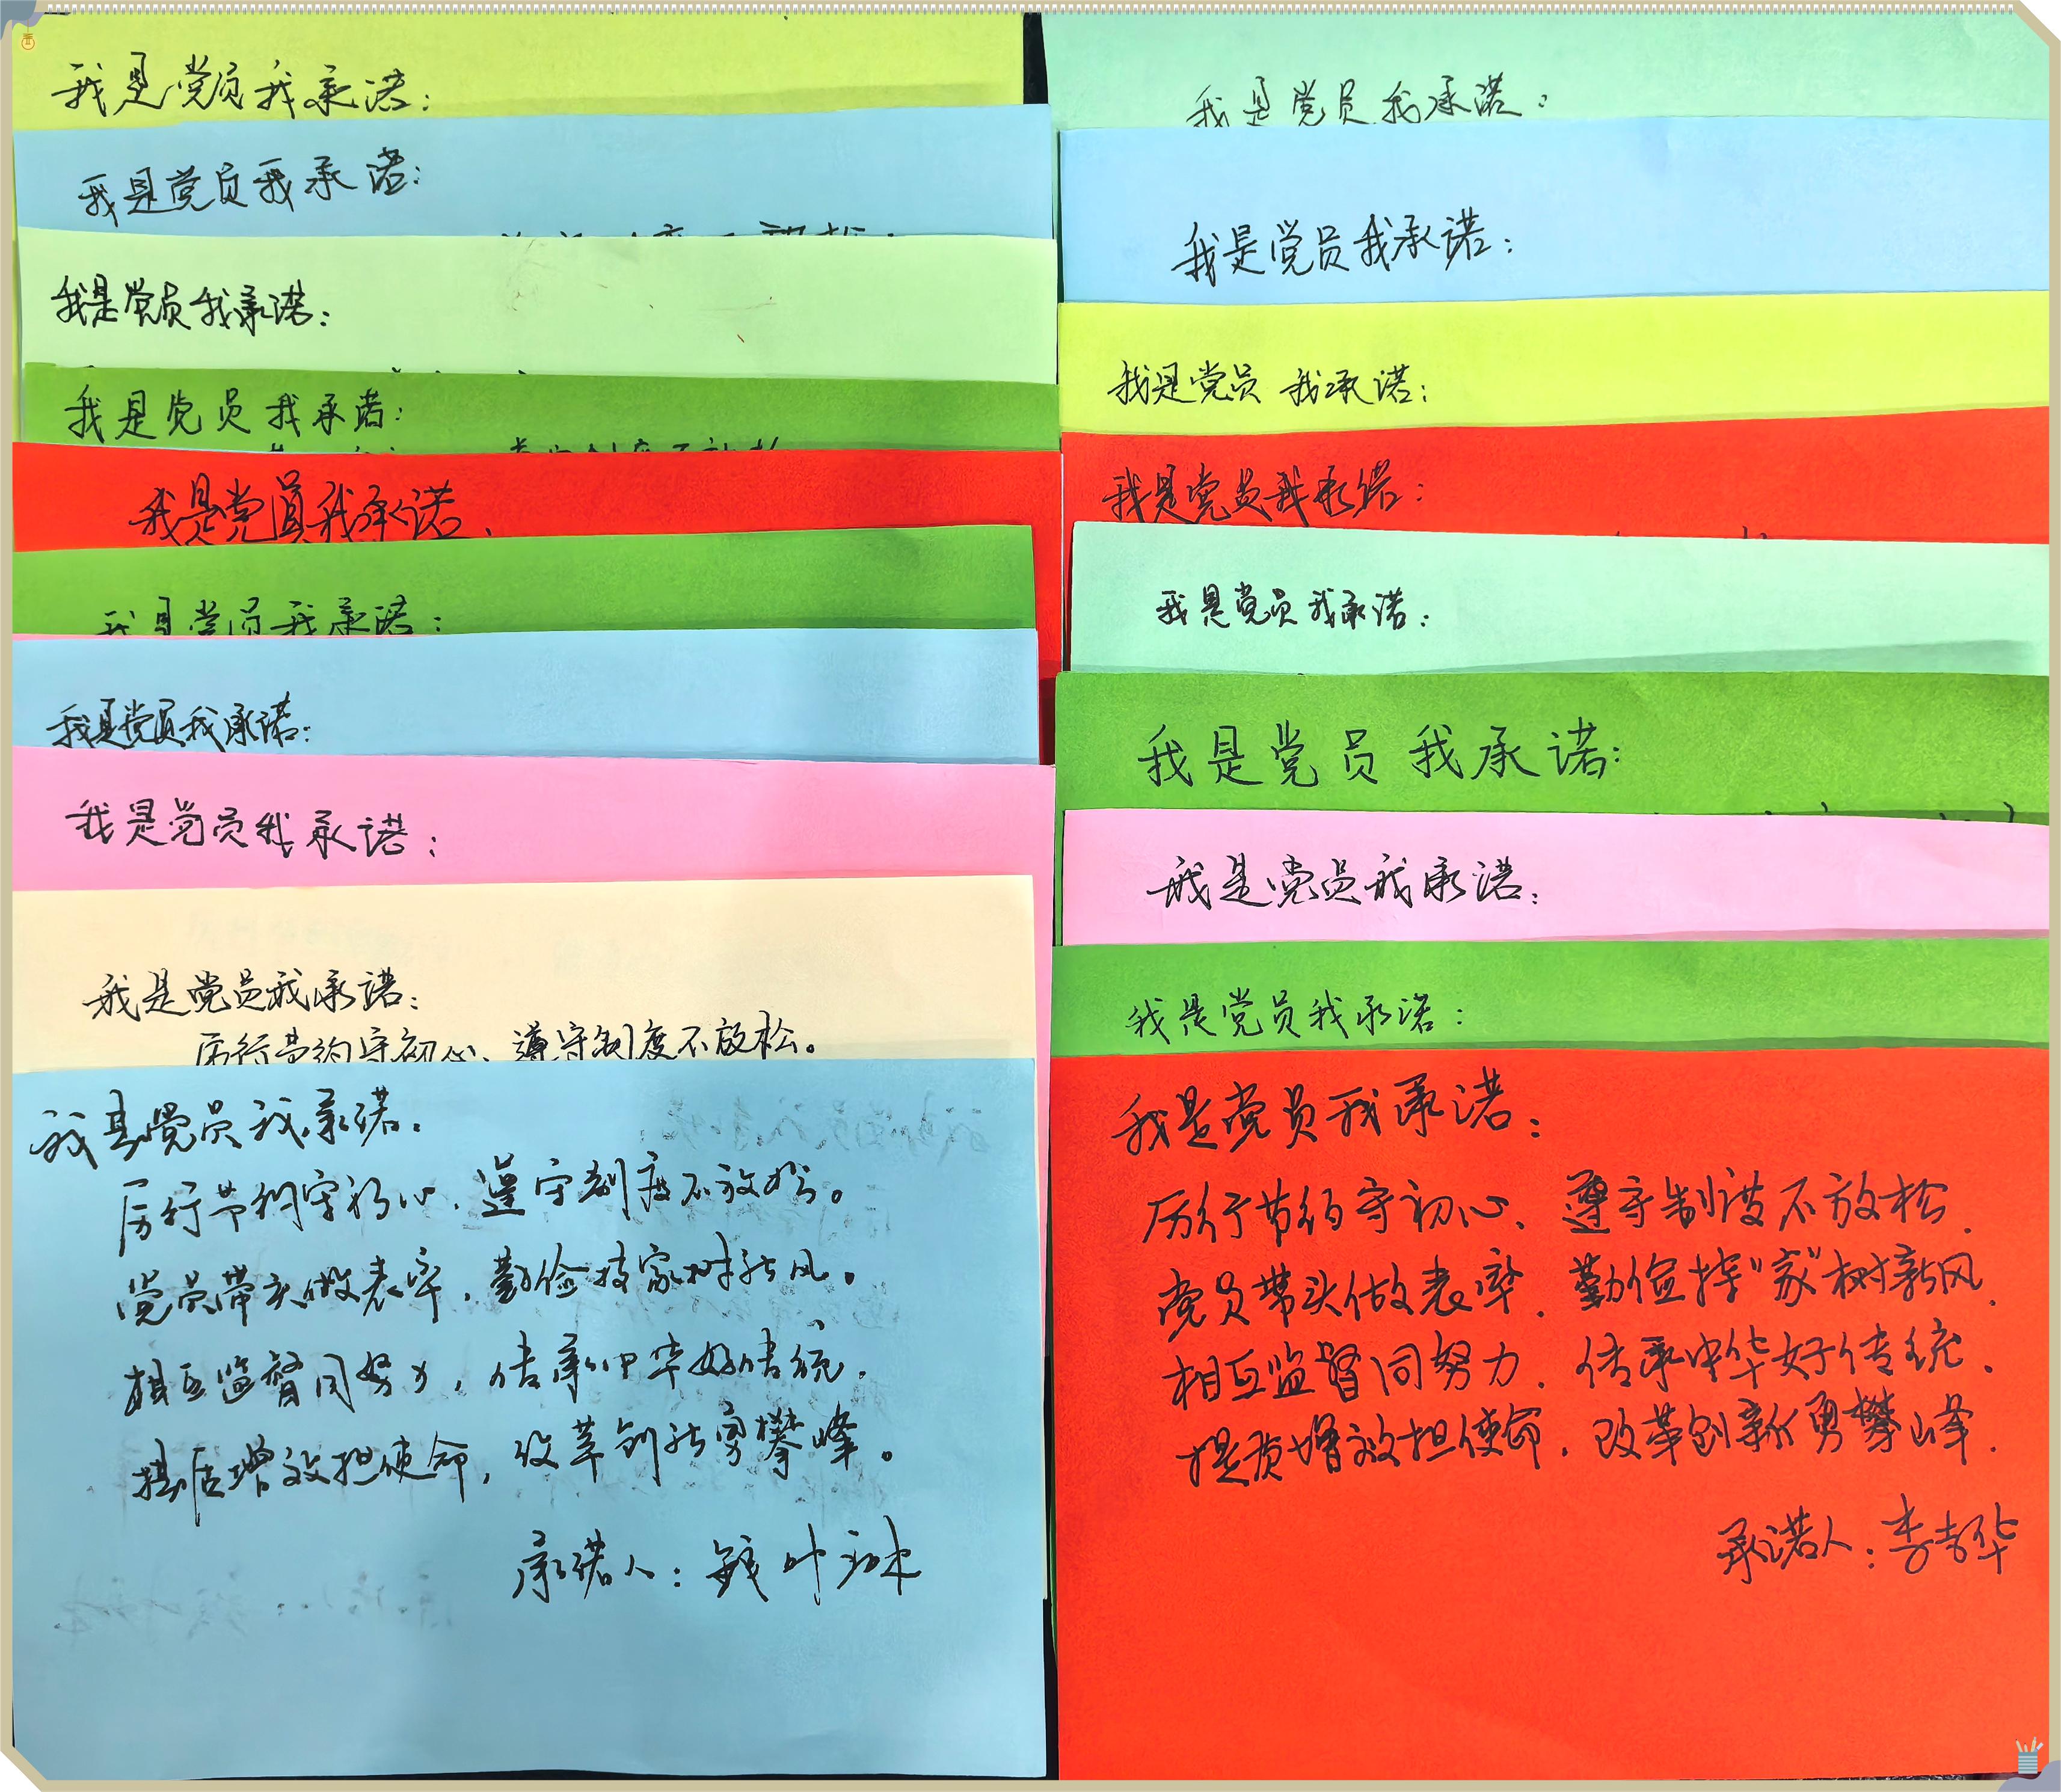 我是党员我承诺：
我是党员我承诺：
我是党员我承诺：
我是党员我承诺：
我是党员我承诺.
我是党员我承诺：
我是党员我承诺：
我是党员我承诺：
我是党员我承诺：
厉行节约守初心、遵守制度不放松。
我是党员我承诺：
厉行节约守初心，遵守制度不放松。
党员带头做表率，勤俭持家树新风。
相互监督同努力，传承中华好传统.
提质增效担使命，改革创新勇攀峰。
承诺人：钱叶
我是党员我承诺：
我是党员我承诺：
我是党员 我承诺：
我是党员我承诺：
我是党员我承诺：
我是党员 我承诺：
我是党员我承诺：
我是党员我承诺：
我是党员我承诺：
厉行节约守初心、遵守制度不放松.
党员带头做表率.勤俭持“家”树新风.
相互监督同努力.传承中华好传统.
提质增效担使命.改革创新勇攀峰.
承诺人：李吉华